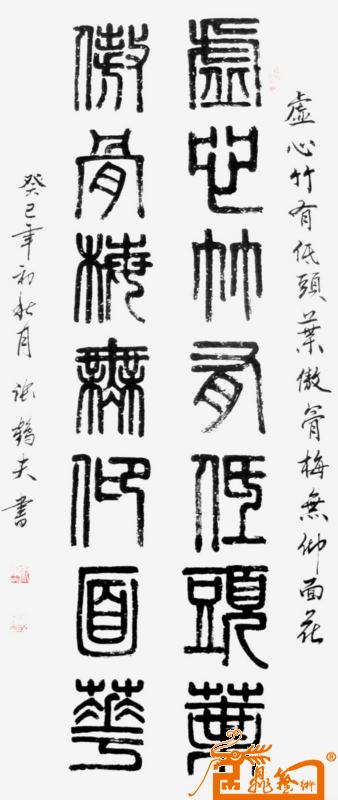 虛心竹有低頭葉傲骨梅無仰面花
虛心竹有低頭葉
傲骨梅無仰面華
癸巳年初秋月 張鶴夫書